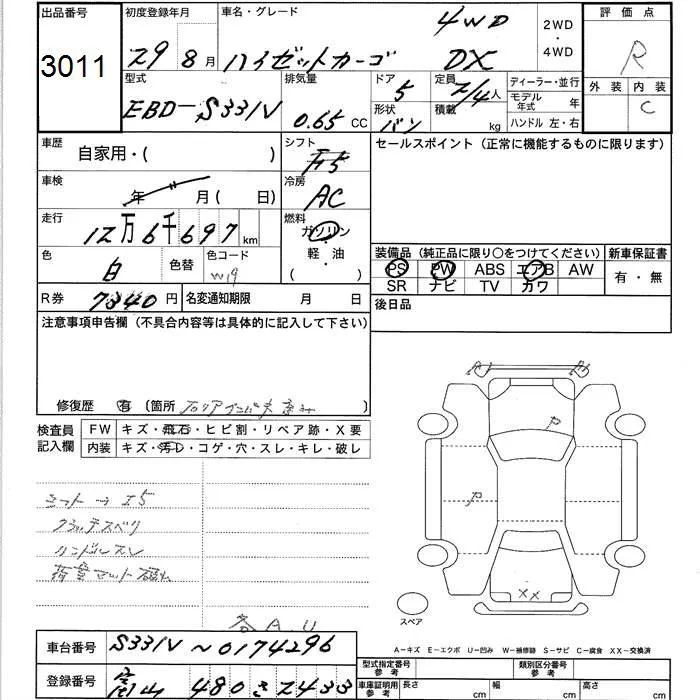 出品番号 3011
初度登録年月 29 8月
車名・グレード ハイゼットカーゴ 4WD DX
2WD・4WD
評価点 R
外装 内装 C
型式 EBD-S331V
排気量 0.65 CC
ドア 5 形状 バン
定員 2/4人 積載 kg
ディーラー・並行
モデル年式 年
ハンドル 左・右
車歴 自家用・( )
シフト F5
セールスポイント（正常に機能するものに限ります）
車検 年 月( 日)
冷房 AC
走行 12万6千697km
燃料 ガソリン・軽・油 ( )
色 白 色替 色コード W19
装備品（純正品に限り○をつけてください）
PS PW ABS エアB AW
SR ナビ TV カワ
新車保証書 有・無
R券 7340円 名変通知期限 月 日
後日品
注意事項申告欄（不具合内容等は具体的に記入して下さい）
修復歴 有 〔箇所 〕
検査員記入欄
FW キズ・飛石・ヒビ割・リペア跡・X要
内装 キズ・汚レ・コゲ・穴・スレ・キレ・破レ
シート→I5
クラッチスベリ
ハンドルスレ
荷室マット破れ
各AU
R R
P
P
XX
スペア
A－キズ E－エクボ U－凹み W－補修跡 S－サビ C－腐食 XX－交換済
車台番号 S331V～0174296
型式指定番号 参考
類別区分番号 参考
登録番号 富山 480 さ 2433
車庫証明用 参考 長さ cm 幅 cm 高さ cm